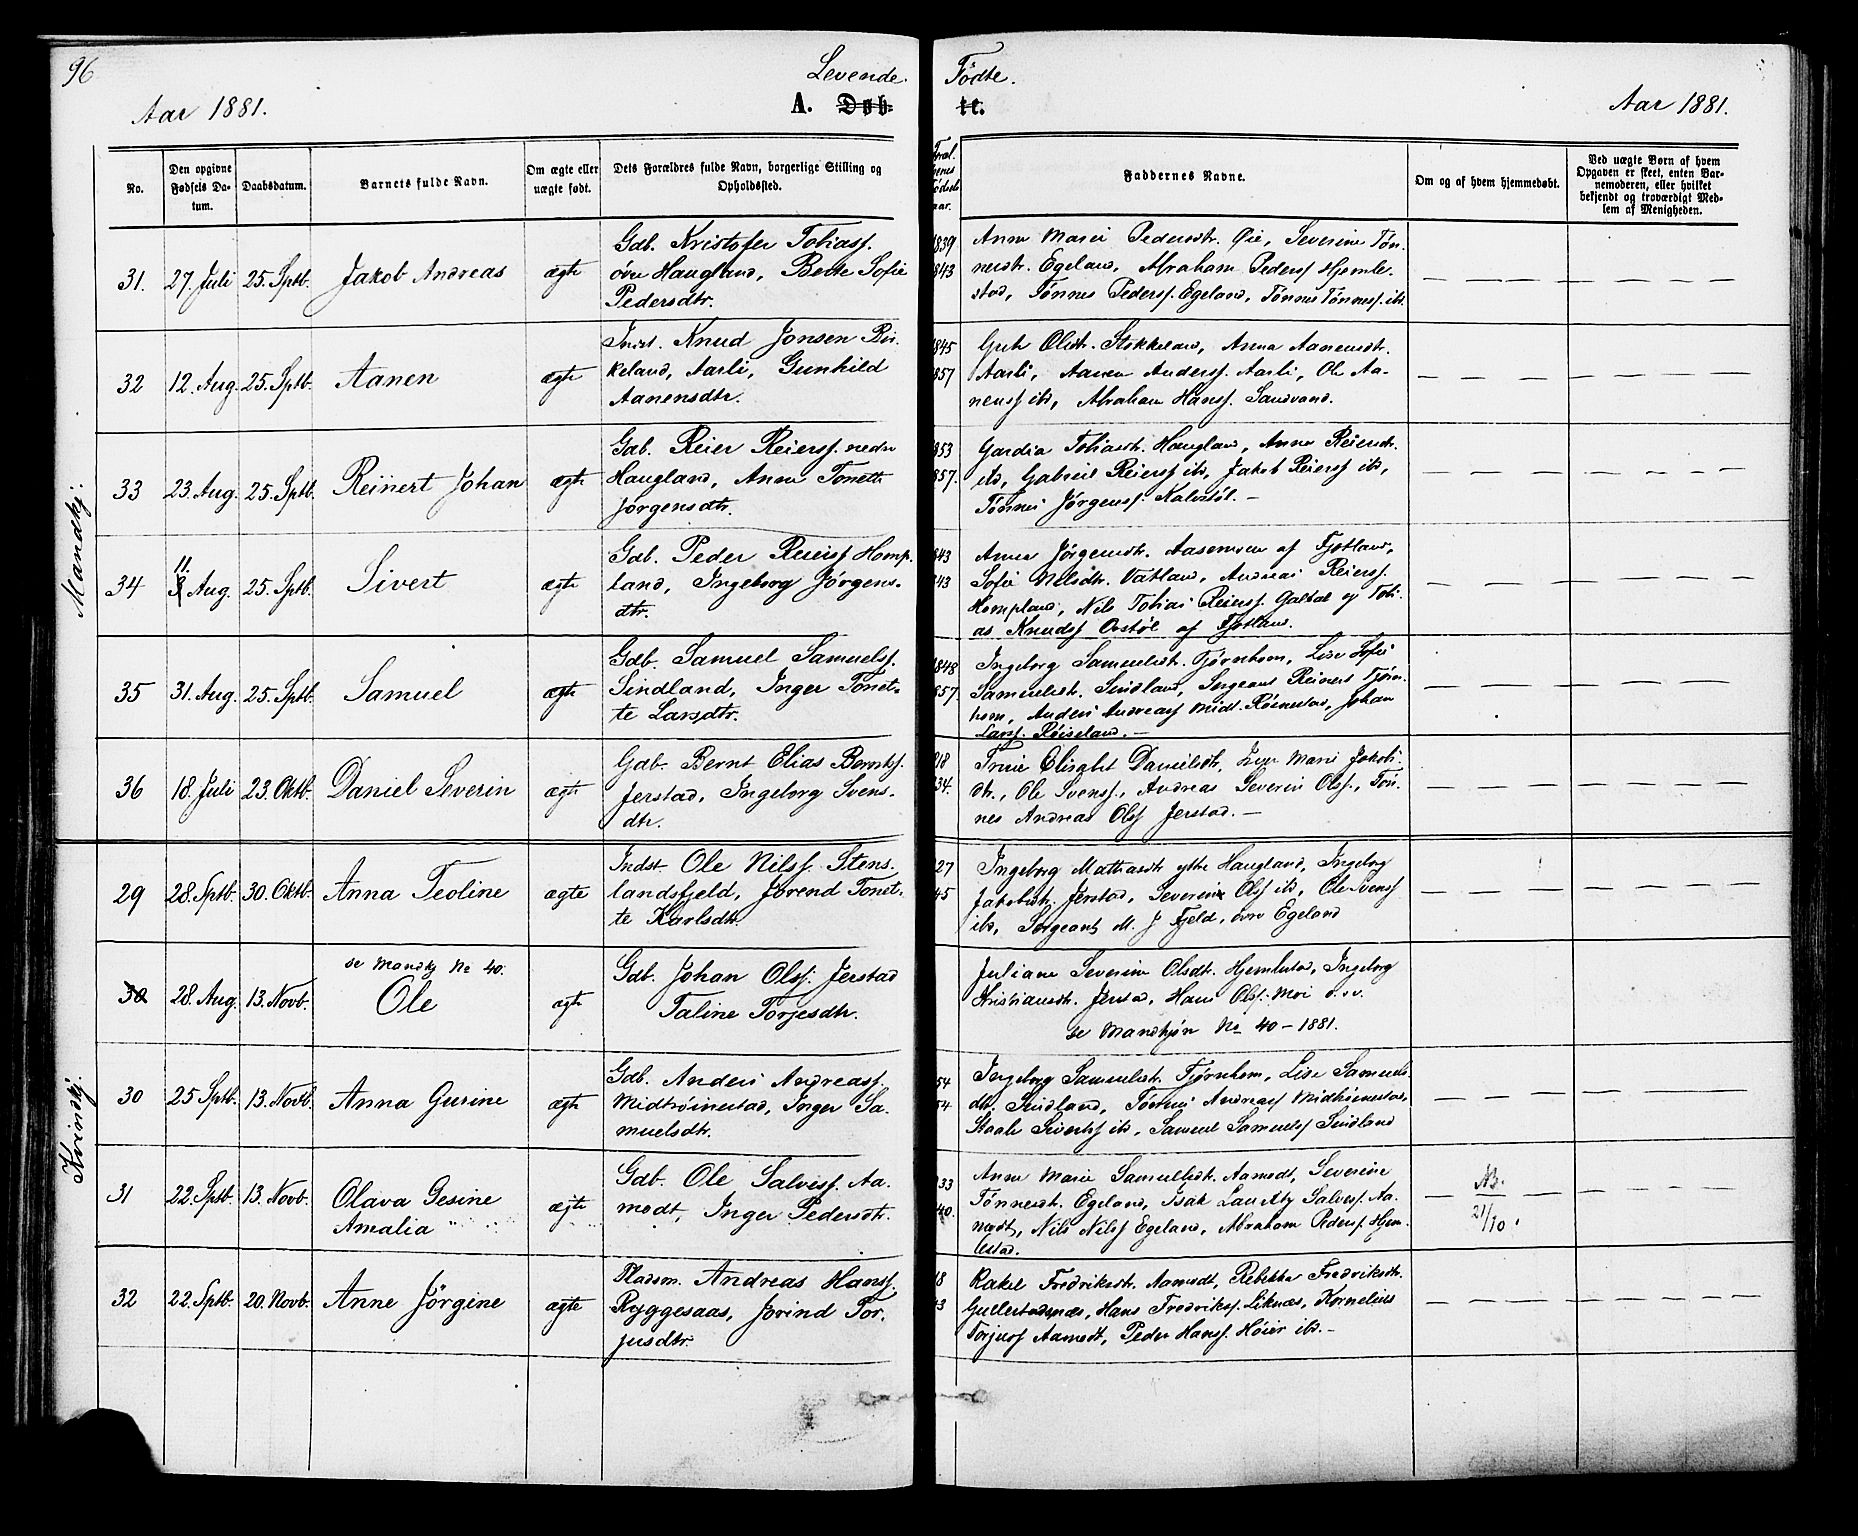 96
Levende Fødte.
Aar 1881. A. Døbte. Aar 1881.
No.
Den opgivne Fødsels Datum.
Daabsdatum.
Barnets fulde Navn.
Om ægte eller uægte født.
Dets Forældres fulde Navn, borgerlige Stilling og Opholdssted.
Faddernes Navne.
Om og af hvem hjemmedøbt.
Ved uægte Børn af hvem Opgaven er skeet, enten Barnemoderen, eller hvilket bekjendt og troværdigt Medlem af Menigheden.
Mandkj:
31. 27. Juli 25. Sptb. Jakob Andreas ægte
Gdb. Kristofer Tobiass.
øvre Haugland, Berte Sofie
Pedersdtr.
1839
1843
Anne Marie Pedersdtr. Øie, Severine Tøn-
nesdtr. Egeland, Abraham Pederss Hjemle-
stad, Tønnes Pederss. Egeland, Tønnes Tønness. ibd.
32 12. Aug. 25. Sptb. Aanen ægte
Indst. Knud Jonsen Bir-
keland, Aarli, Gunhild
Aanensdtr.
1845
1857
Olsdtr. Stokkeland, Anna Aanensdtr.
Aarli, Aanen Anderss. Aarli, Ole Aa-
nenss ibd, Abraham Hanss. Sandvand.
33 23. Aug. 25. Sptb. Reinert Johan ægte
Gdb. Reier Reierss. nedre
Haugland, Anne Tonette
Jørgensdtr.
853
857.
Gardia Tobiasdtr. Haugland, Anne Reiersdtr.
ibd, Gabriel Reierss ibd, Jakob Reierss ibd,
Tønnes Jørgenss. Kalvstøl. —
34 11. Aug. 25. Sptb. Sivert ægte
Gdb. Peder Reierss Homp-
land, Ingeborg Jørgens-
dtr.
843
843
Anna Jørgensdtr. Aasemoen af Fjotland,
Sofie Nilsdtr. Vatland, Andreas Reierss.
Hompland, Nils Tobias Reierss. Galdal og Tobi-
as Knudss Ovstøl af Fjotland.
35 31. Aug. 25. Sptb. Samuel ægte
Gdb. Samuel Samuelss.
Sindland, Inger Tonet-
te Larsdtr.
1848
857.
Ingeborg Samuelsdtr. Tjørnhom, Lise Sofie
Samuelsdtr. Sindland, Sergeant Reinert Tjørn-
hom, Anders Andreass Midt-Røinestad, Johan
Larss. Røiseland. —
36 18. Juli 23. Oktb. Daniel Severin ægte
Gdb. Bernt Elias Berntss.
Jerstad, Ingeborg Svens-
dtr.
818
834.
Trine Elisabet Danielsdtr, Inger Marie Jakobs-
dtr., Ole Svenss., Andreas Severin Olss., Tøn-
nes Andreas Olss Jerstad. —
Kvindkj.
29 28. Sptb. 30. Oktb. Anna Teoline ægte
Indst. Ole Nilss. Stens-
landsfjeld, Jørend Tonet-
te Karlsdtr.
27
45
Ingeborg Mathiasdtr ytre Haugland, Ingeborg
Jakobsdtr. Jerstad, Severin Olss ibd, Ole Svenss
ibd, Sergeant M. J Fjeld, øvre Egeland
se Mandkj No 40.
30 28. Aug. 13. Novb. Ole ægte
Gdb. Johan Olss. Jerstad
Taline Torjesdtr.
Juliane Severine Olsdtr. Hjemlestad, Ingeborg
Kristiansdtr. Jerstad, Hans Olss. Moi o.s.v.
se Mandkjøn No 40 – 1881.
30 25 Sptb. 13. Novb. Anna Gusine ægte
Gdb. Anders Andreass.
Midtrøinestad, Inger Sa-
muelsdtr.
54
54
Ingeborg Samuelsdtr. Tjørnhom, Lise Samuels-
dtr. Sindland, Tønnes Andreass Midtrøinestad,
Staale Sivertss ibd, Samuel Samuelss Sindland
31 22. Sptb. 13. Novb. Olava Gesine
Amalia ægte
Gdb. Ole Salvess. Aa-
modt, Inger Pedersdtr.
33
40.
Anne Marie Samuelsdtr. Aamodt, Severine
Tønnesdtr. Egeland, Isak Lauritz Salvess. Aa-
modt, Nils Nilss Egeland, Abraham Pederss. Hjem-
lestad.
NB.
21/10.
32 22. Sptb. 20. Novb. Anne Jørgine ægte
Pladsm. Andreas Hanss.
Ryggesaas, Jorind Tor-
jusdtr.
Rakel Fredriksdtr. Aamodt, Rebekka Fredriksdtr.
Gullestadsnæs, Hans Fredrikss. Liknæs, Kornelius
Torjuss Aamodt, Peder Hanss. Høier ibd. —